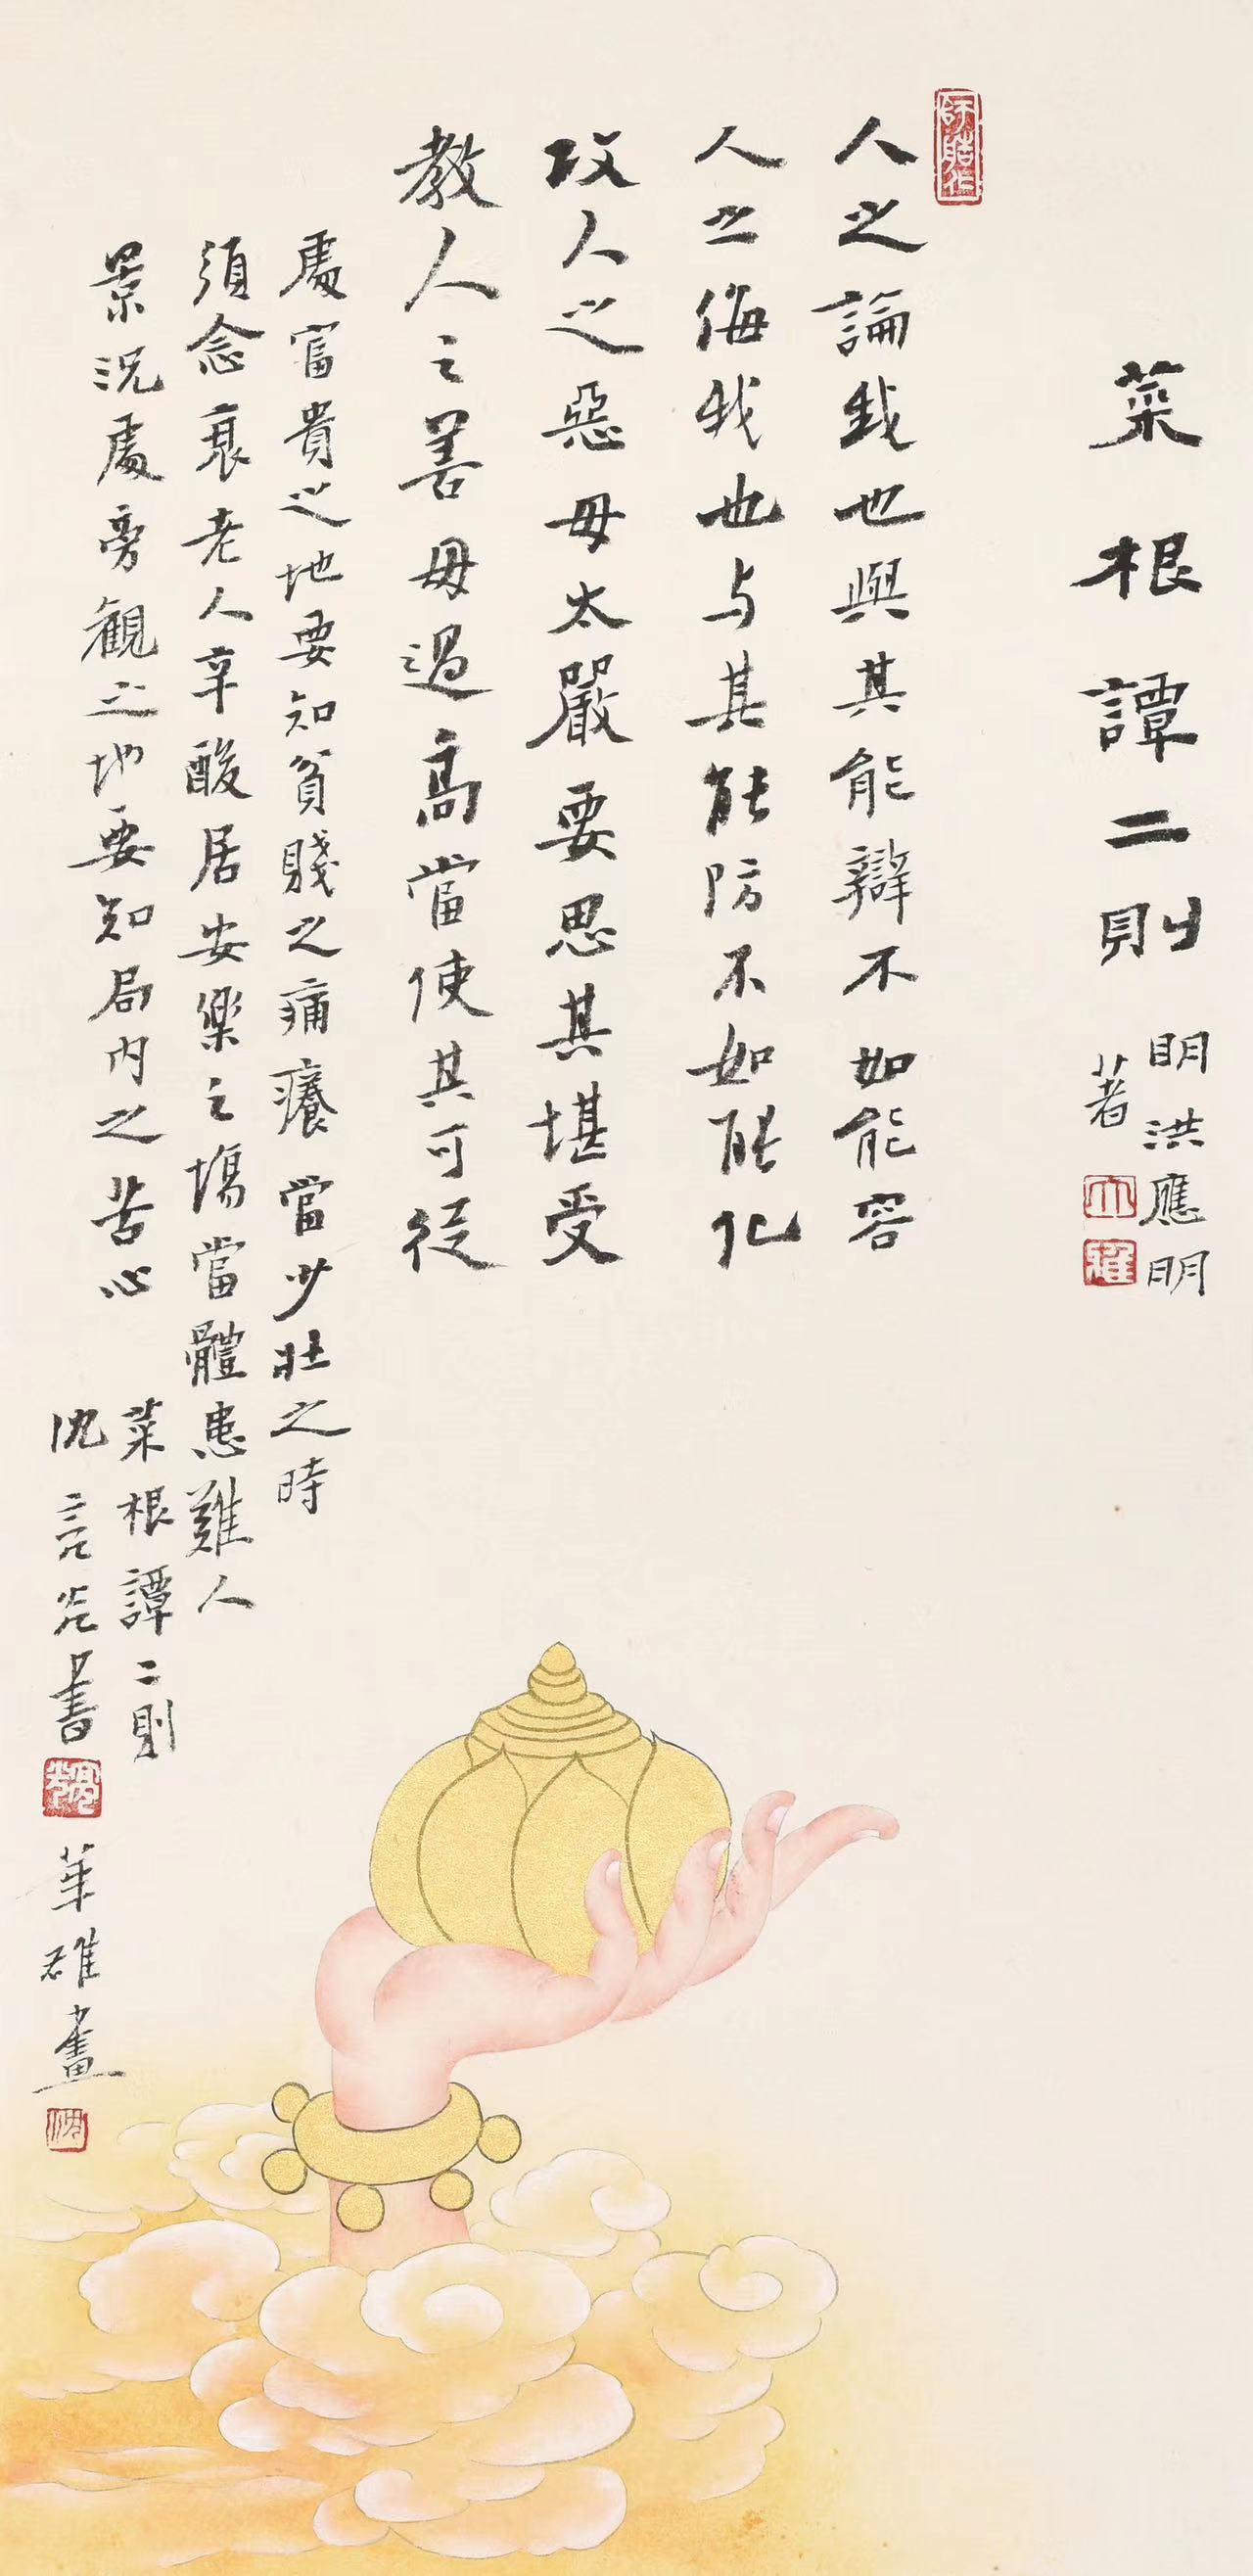 菜根譚二則
明洪應明
著
人之論我也與其能辯不如能容
人之侮我也与其能防不如能化
攻人之惡毋太嚴要思其堪受
教人之善毋過高當使其可從
處富貴之地要知貧賤之痛癢當少壯之時
須念衰老人辛酸居安樂之場當體患難人
景況處旁觀之地要知局內之苦心
菜根譚二則
沈亮光書
華雄畫